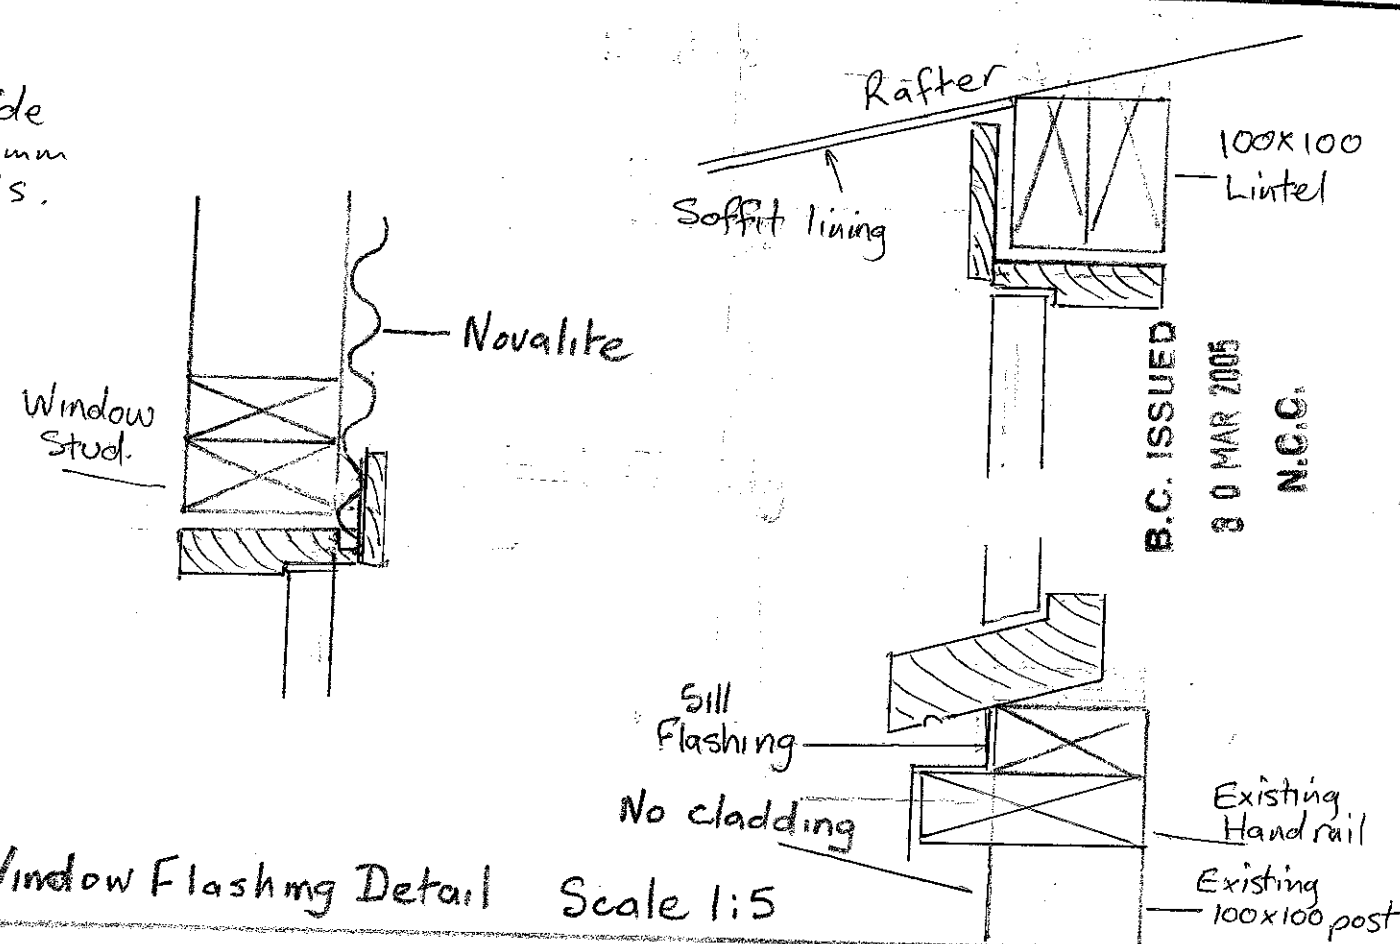 mm
Rafter
100x100
Lintel
Soffit lining
Novalite
Window
Stud.
B.C. ISSUED
30 MAR 2005
N.C.C.
Sill
Flashing
No cladding
Existing
Handrail
Existing
100x100 post
Window Flashing Detail Scale 1:5